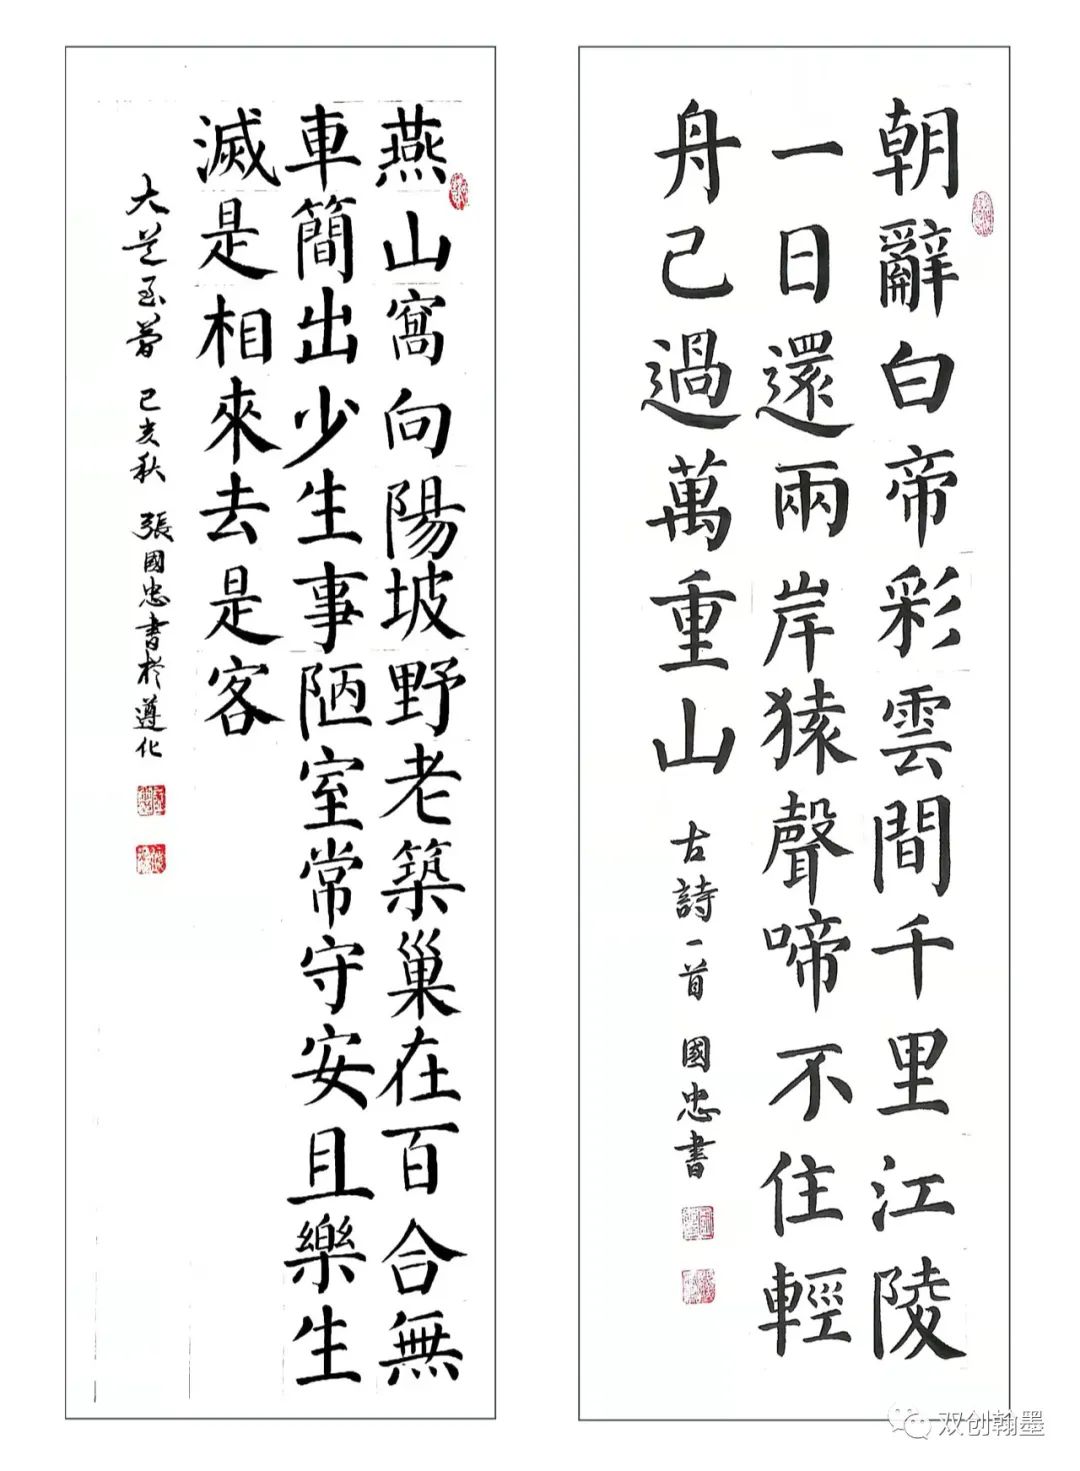 朝辭白帝彩雲間千里江陵
一日還兩岸猿聲啼不住輕
舟己過萬重山
古詩一首 國忠書
燕山窩向陽坡野老築巢在百合無
車簡出少生事陋室常守安且樂生
滅是相來去是客
大道至簡 己亥秋 張國忠書於遵化
双创翰墨